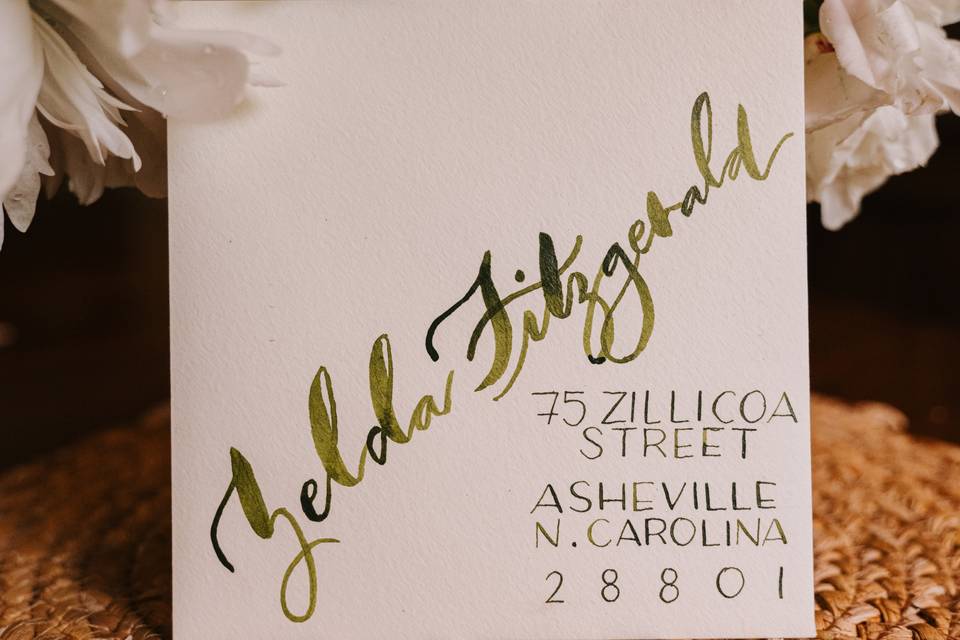 Zelda Fitzgerald
75 ZILLICOA
STREET
ASHEVILLE
N. CAROLINA
28801